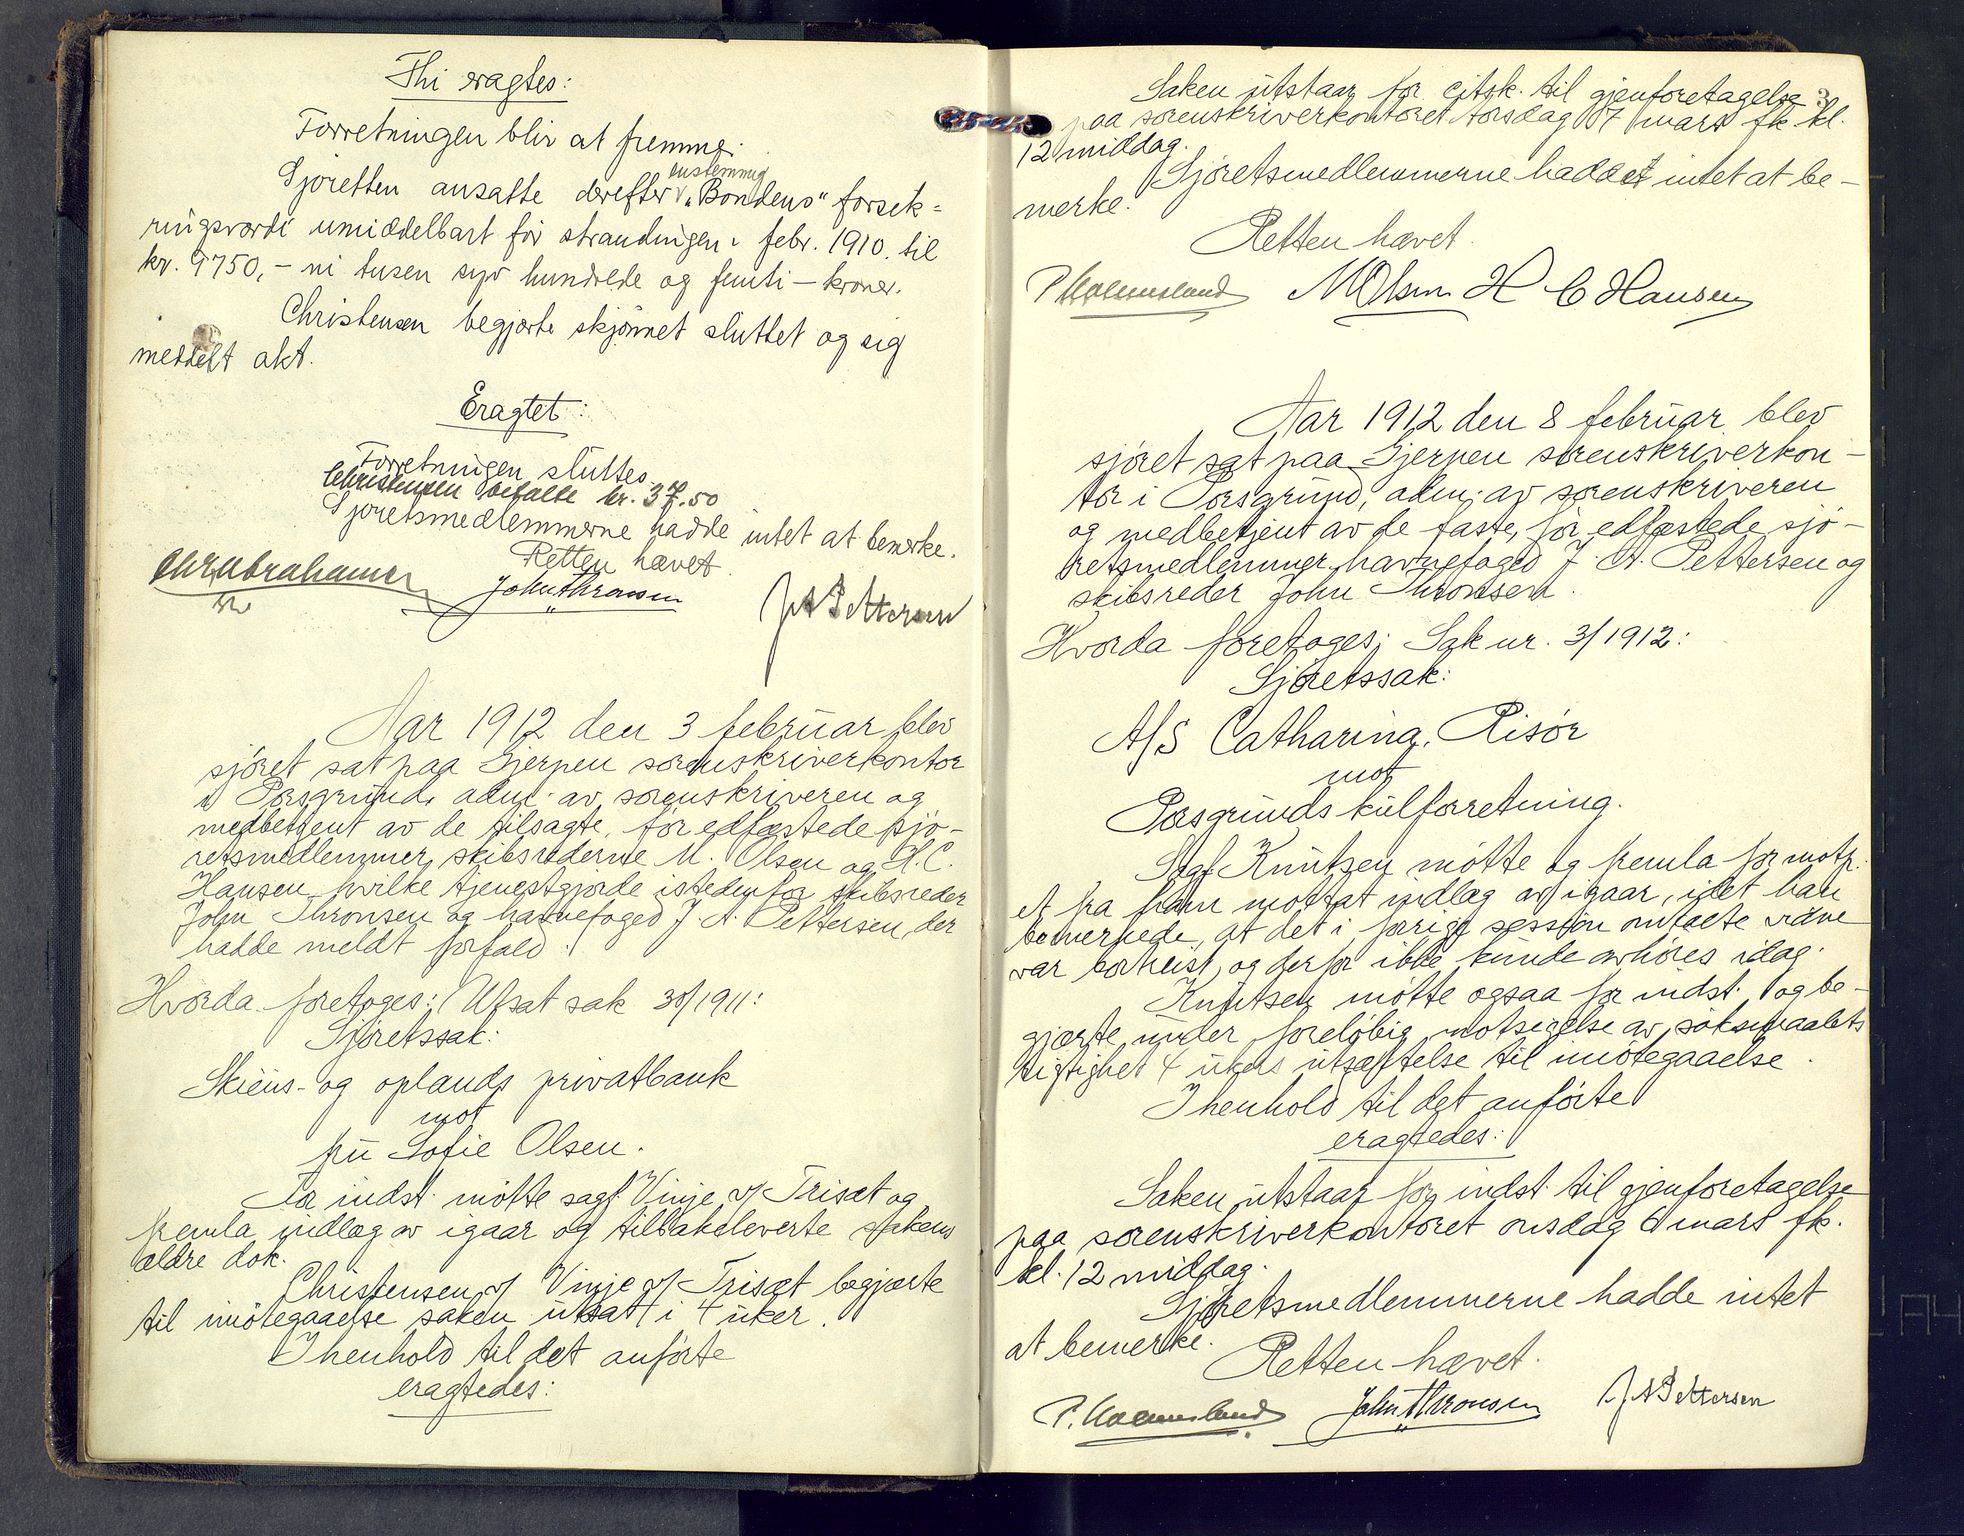 Thi eragtes:
Forretningen blir at fremme.
enstemmig
Sjøretten ansatte derefter v „Bondens" forsik=
ringsværdi umiddelbart før strandingen i febr. 1910 til
kr. 9750,- ni tusen syv hundrede og femti - kroner.
Christensen begjærte skjønnet sluttet og sig
meddelt akt.
Eragtet:
Forretningen sluttes.
Christensen betalte kr. .50
Sjøretsmedlemmerne hadde intet at bemerke.
Retten hævet.
Chr Abrahamsen John Thronsen J A Pettersen
Aar 1912 den 3 februar blev
sjøret sat paa Gjerpen sorenskriverkontor
i Porsgrund, adm. av sorenskriveren og
medbetjent av de tilsagte, før edfæstede sjø-
retsmedlemmer, skibsrederne M. Olsen og H.C.
Hansen, hvilke tjenestgjorde istedenfor skibsreder
John Thronsen og havnefoged J. A. Pettersen, der
hadde meldt forfald.
Hvorda foretoges: Utsat sak 30/1911:
Sjøretssak:
Skiens- og oplands privatbank
mot
fru Sofie Olsen.
For indst. møtte sagf. Vinje v/ Trisæt og
fremla indlæg av igaar og tilbakeleverte sakens
ældre dok.
Christensen v/ Vinje v/ Trisæt begjærte
til imøtegaaelse saken utsat i 4 uker.
I henhold til det anførte
eragtedes:
3
Saken utstaar for citsk. til gjenforetagelse
paa sorenskriverkontoret torsdag 7 mars fk. kl.
12 middag.
Sjøretsmedlemmerne hadde intet at be-
merke.
Retten hævet.
P Holmesland M Olsen H C Hansen
Aar 1912 den 8 februar blev
sjøret sat paa Gjerpen sorenskriverkon-
tor i Porsgrund, adm. av sorenskriveren
og medbetjent av de faste, før edfæstede sjø-
retsmedlemmer, havnefoged J. A. Pettersen og
skibsreder John Thronsen.
Hvorda foretoges: Sak nr. 3/1912:
Sjøretssak:
A/S Catharina, Risør
mot
Porsgrunds kulforretning.
Sagf. Knutzen møtte og fremla for motp.
et fra ham mottat indlæg av igaar, idet han
bemerkede, at det i forrige session omtalte vidne
var bortreist, og derfor ikke kunde avhøres idag.
Knutsen møtte ogsaa for indst. og be-
gjærte under foreløbig motsigelse av søksmaalets
rigtighet 4 ukers utsættelse til imøtegaaelse.
I henhold til det anførte
eragtedes:
Saken utstaar for indst. til gjenforetagelse
paa sorenskriverkontoret onsdag 6 mars fk.
kl. 12 middag.
Sjøretsmedlemmerne hadde intet
at bemerke.
Retten hævet.
P. Holmesland John Thronsen J A Pettersen